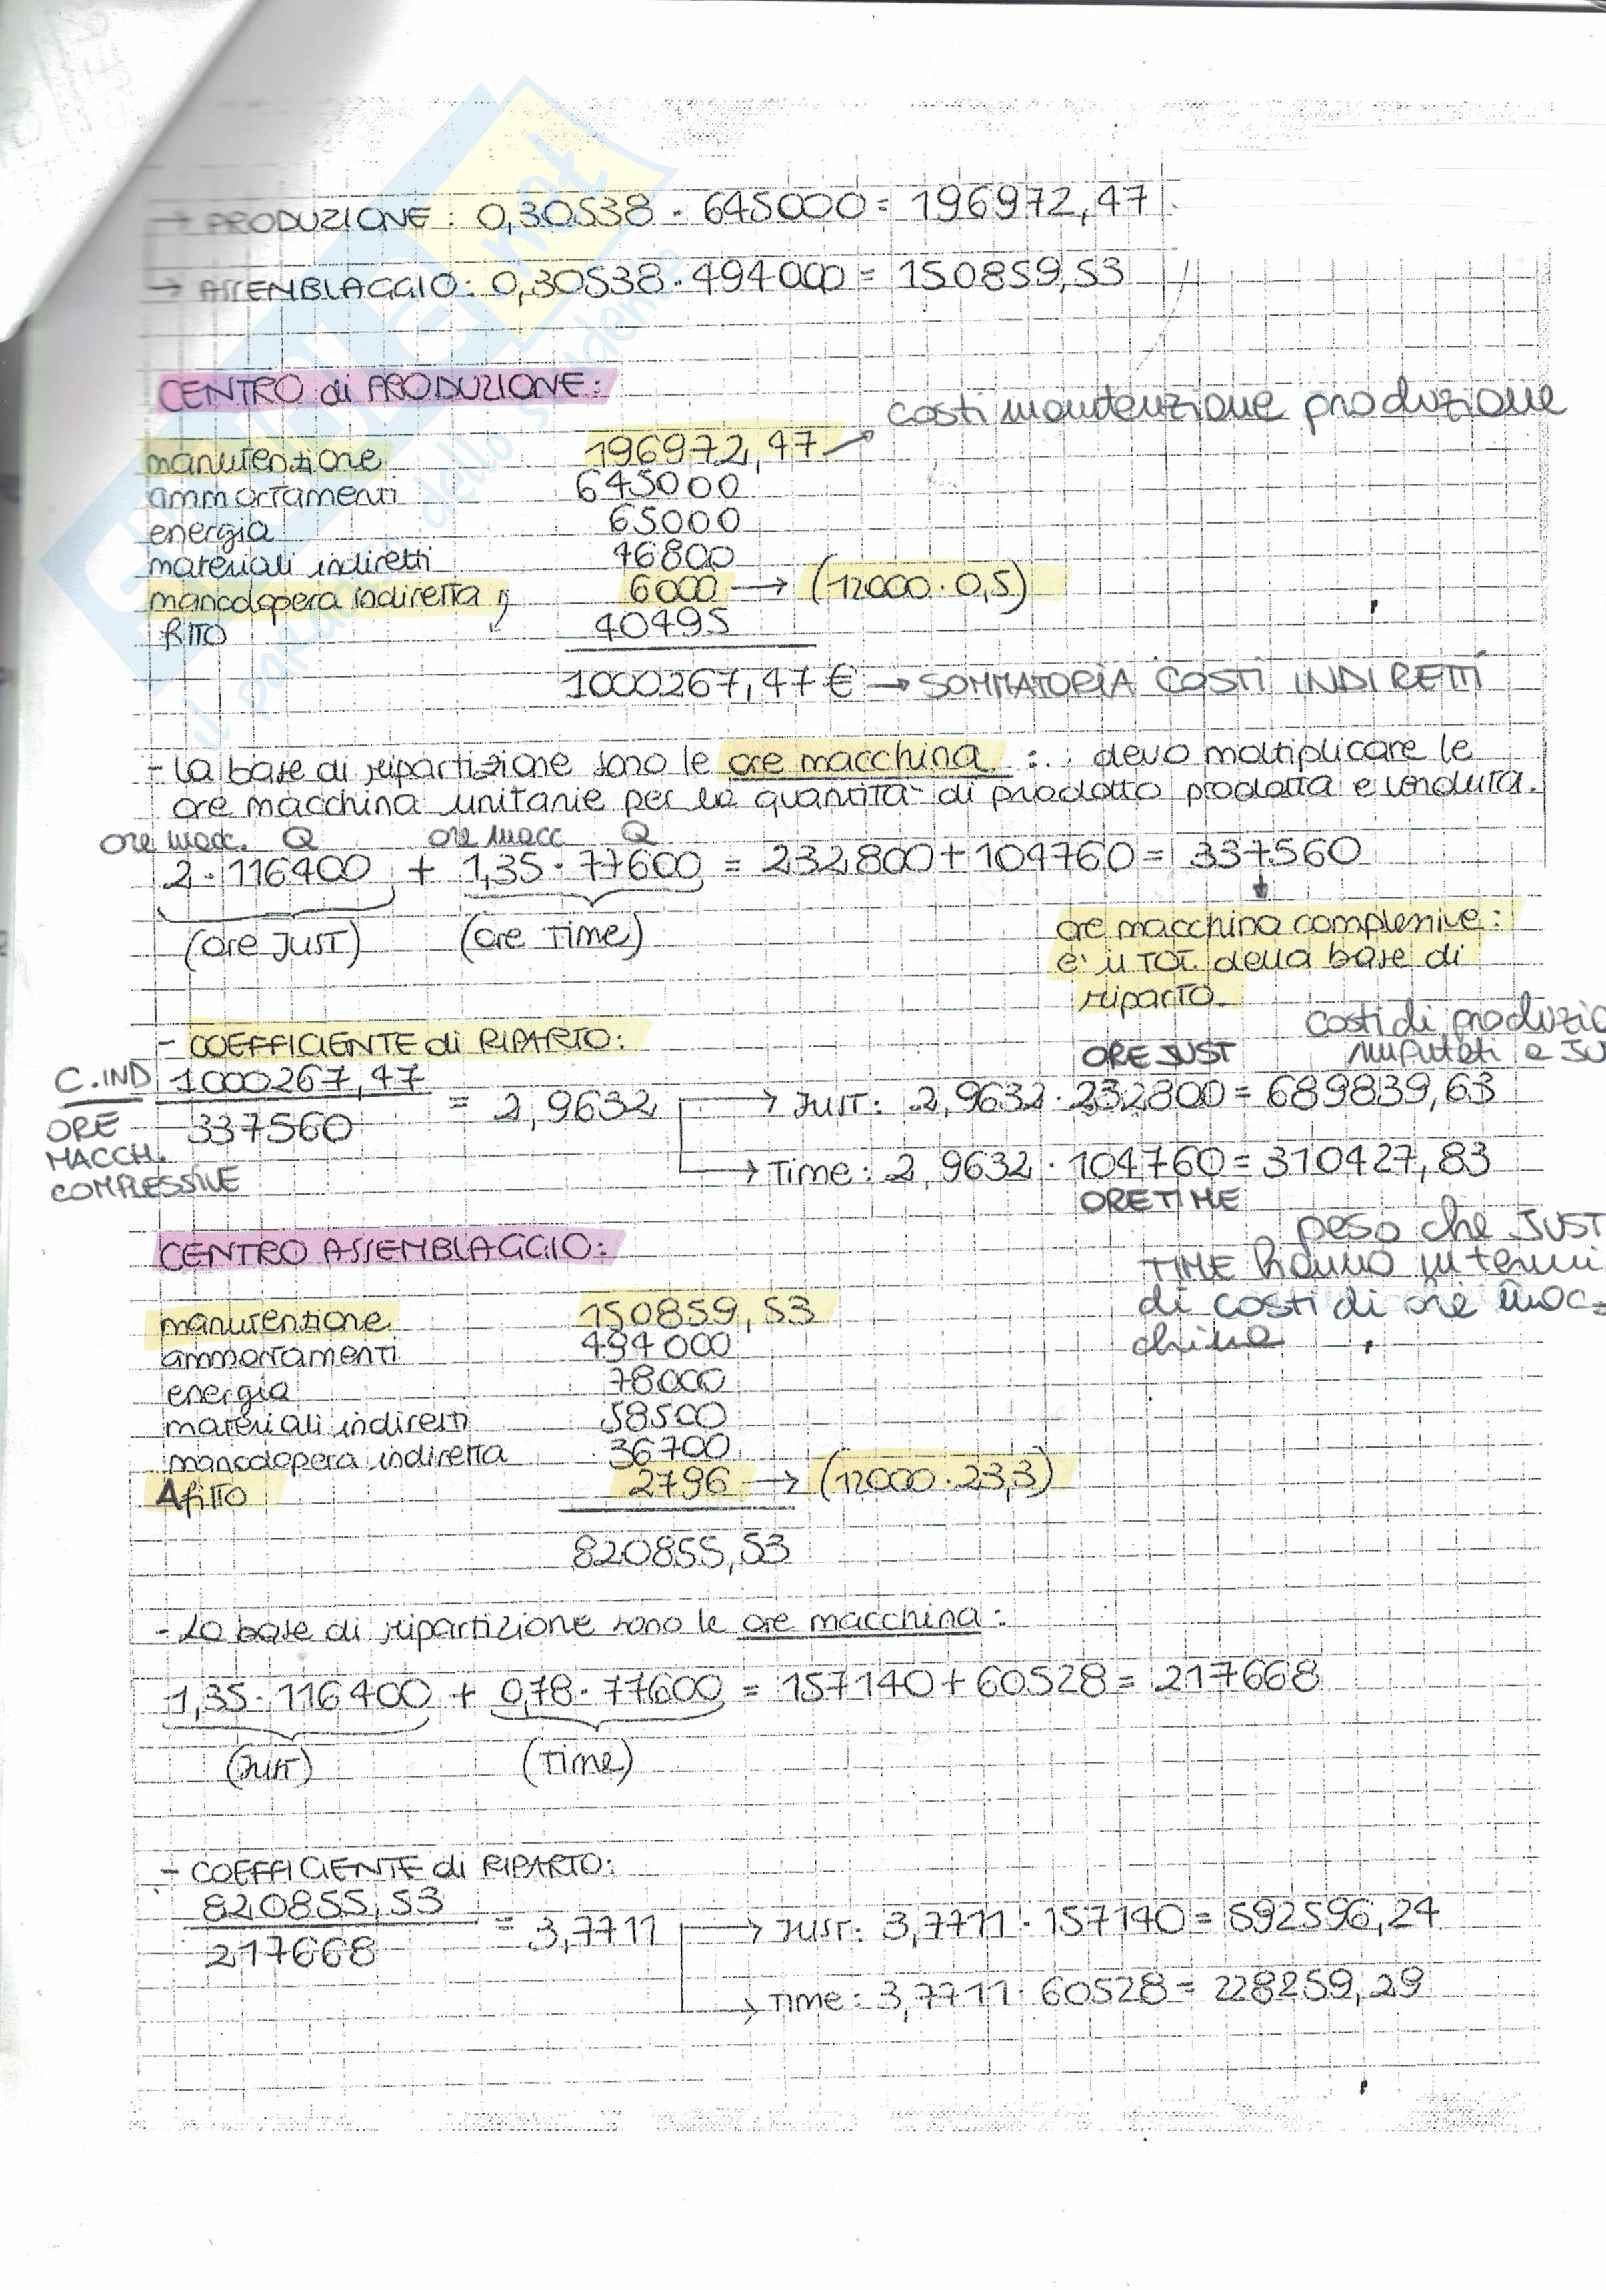 → PRODUZIONE : 0,30538 · 645000 = 196972,47
→ ASSEMBLAGGIO: 0,30538 · 494000 = 150859,53
CENTRO di PRODUZIONE:
costi manutenzione produzione
manutenzione 196972,47
ammortamenti 645000
energia 65000
materiali indiretti 46800
manodopera indiretta 6000 → (12000 · 0,5)
fitto 40495
1000267,47 € → SOMMATORIA COSTI INDIRETTI
- La base di ripartizione sono le ore macchina : devo moltiplicare le
ore macchina unitarie per la quantità di prodotto prodotta e venduta.
ore macc. Q ore macc Q
2 · 116400 + 1,35 · 77600 = 232800 + 104760 = 337560
(ore JUST) (ore Time)
ore macchina complessive:
e' il TOT. della base di
riparto.
costi di produzio
- COEFFICIENTE di RIPARTO:
ORE JUST imputati a JU
C. IND 1000267,47 = 2,9632 → JUST: 2,9632 · 232800 = 689839,63
ORE 337560
MACCH.
COMPLESSIVE
→ Time: 2,9632 · 104760 = 310427,83
ORE TIME
peso che JUST
TIME hanno in termini
di costi di ore mac-
china
CENTRO ASSEMBLAGGIO:
manutenzione 150859,53
ammortamenti 494000
energia 78000
materiali indiretti 58500
manodopera indiretta 36700
Afitto 2796 → (12000 · 23,3)
820855,53
- La base di ripartizione sono le ore macchina:
1,35 · 116400 + 0,78 · 77600 = 157140 + 60528 = 217668
(JUST) (Time)
- COEFFICIENTE di RIPARTO:
820855,53 = 3,7711 → JUST: 3,7711 · 157140 = 592596,24
217668
→ Time: 3,7711 · 60528 = 228259,29